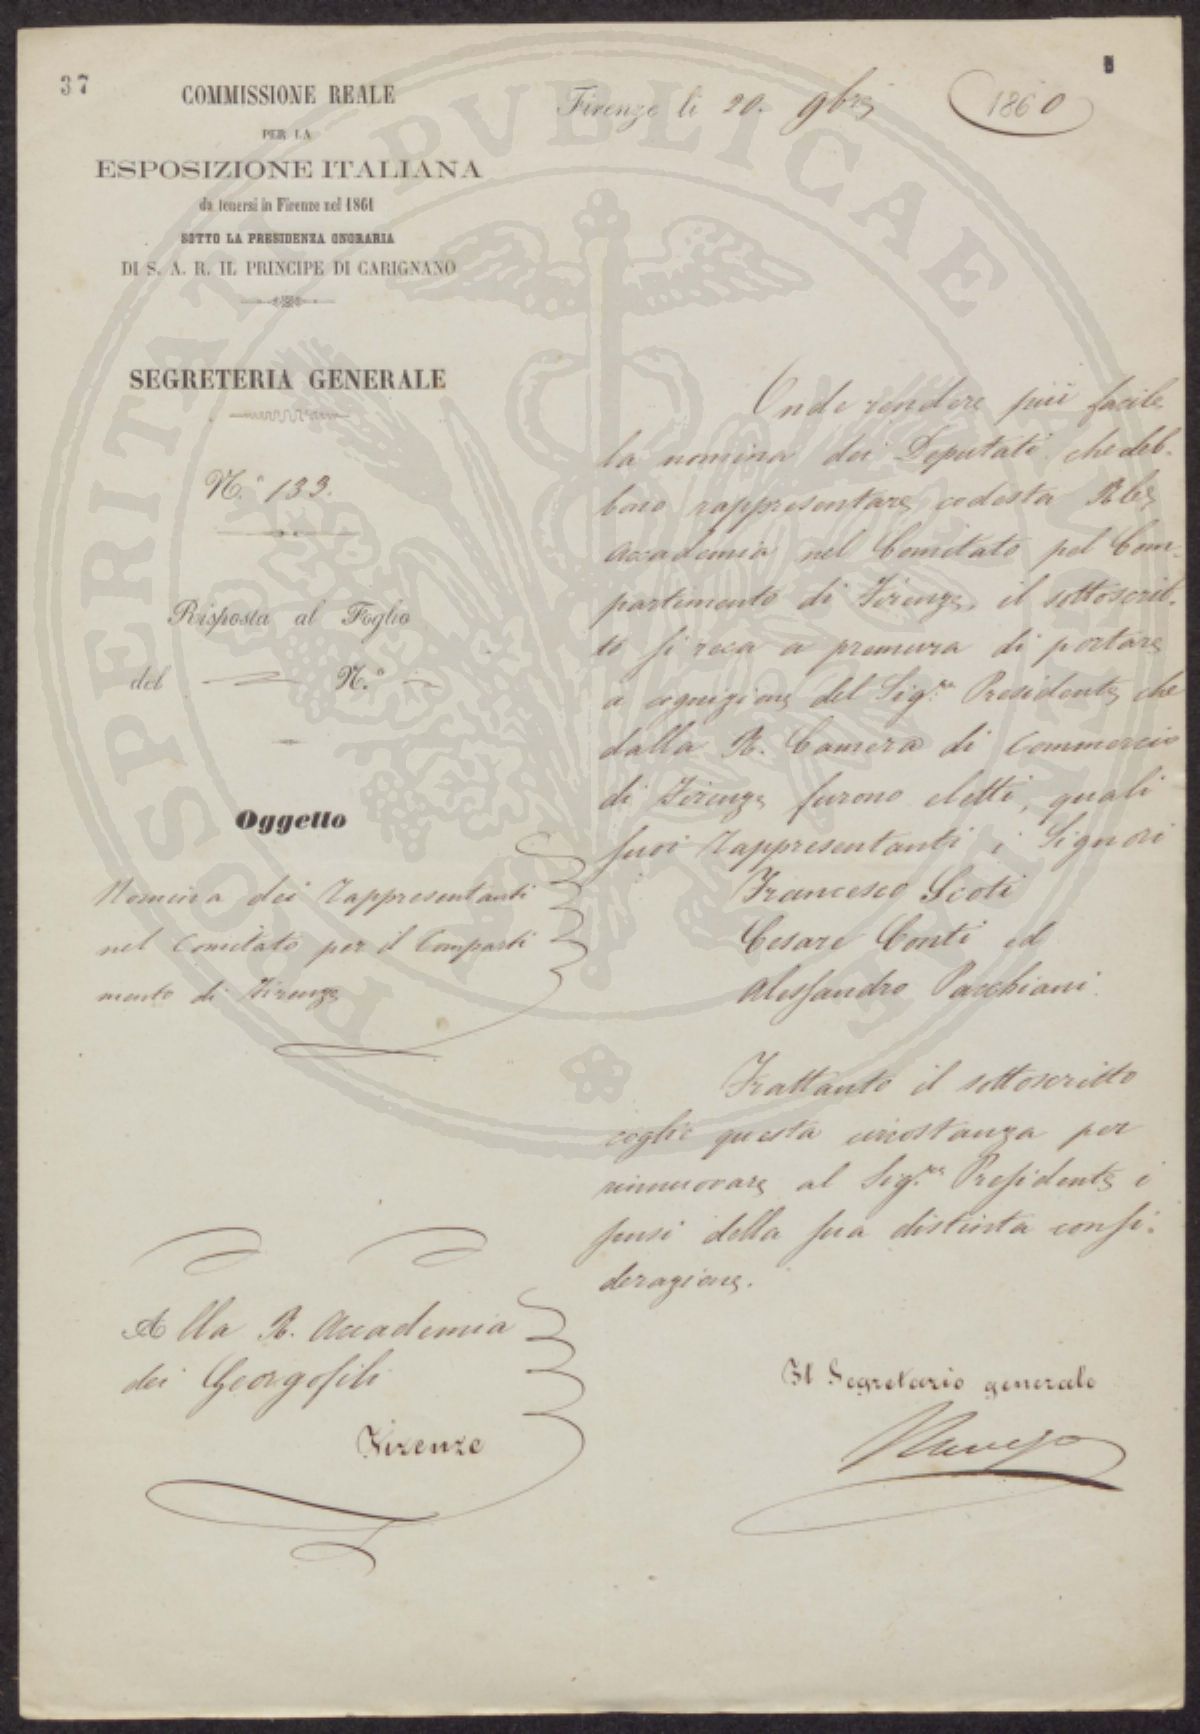 37
COMMISSIONE REALE
PER LA
ESPOSIZIONE ITALIANA
da tenersi in Firenze nel 1861
SOTTO LA PRESIDENZA ONORARIA
DI S. A. R. IL PRINCIPE DI CARIGNANO
SEGRETERIA GENERALE
N.º 133.
Risposta al Foglio
del N.º
Oggetto
Nomina dei Rappresentanti
nel Comitato per il Comparti
mento di Firenze
Alla R. Accademia
dei Georgofili
Firenze
Firenze li 20. 9bre 1860
Onde rendere più facile
la nomina dei Deputati che deb-
bono rappresentare codesta Rle
Accademia nel Comitato pel Com-
partimento di Firenze, il sottoscrit-
to si reca a premura di portare
a cognizione del Sig.re Presidente che
dalla R. Camera di Commercio
di Firenze furono eletti, quali
suoi Rappresentanti i Signori
Francesco Scoti
Cesare Conti ed
Alessandro Pacchiani.
Frattanto il sottoscritto
coglie questa circostanza per
rinnuovare al Sig.re Presidente i
sensi della sua distinta consi-
derazione.
Il Segretario generale
PROSPERITATI PVBLICAE AVGENDAE